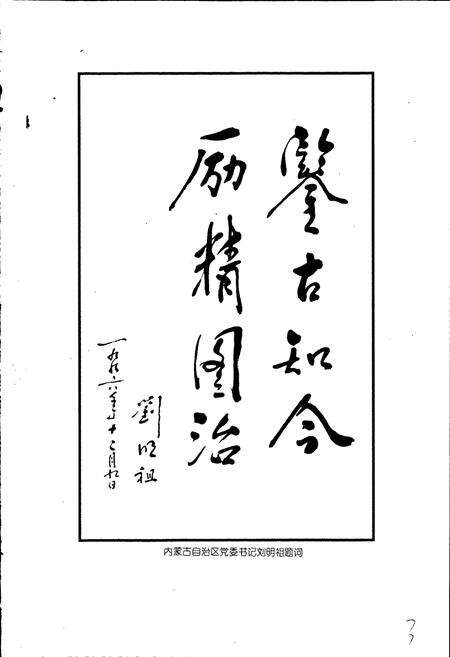 鑒古知今
励精图治
劉明祖
一九九六年十二月九日
内蒙古自治区党委书记刘明祖题词